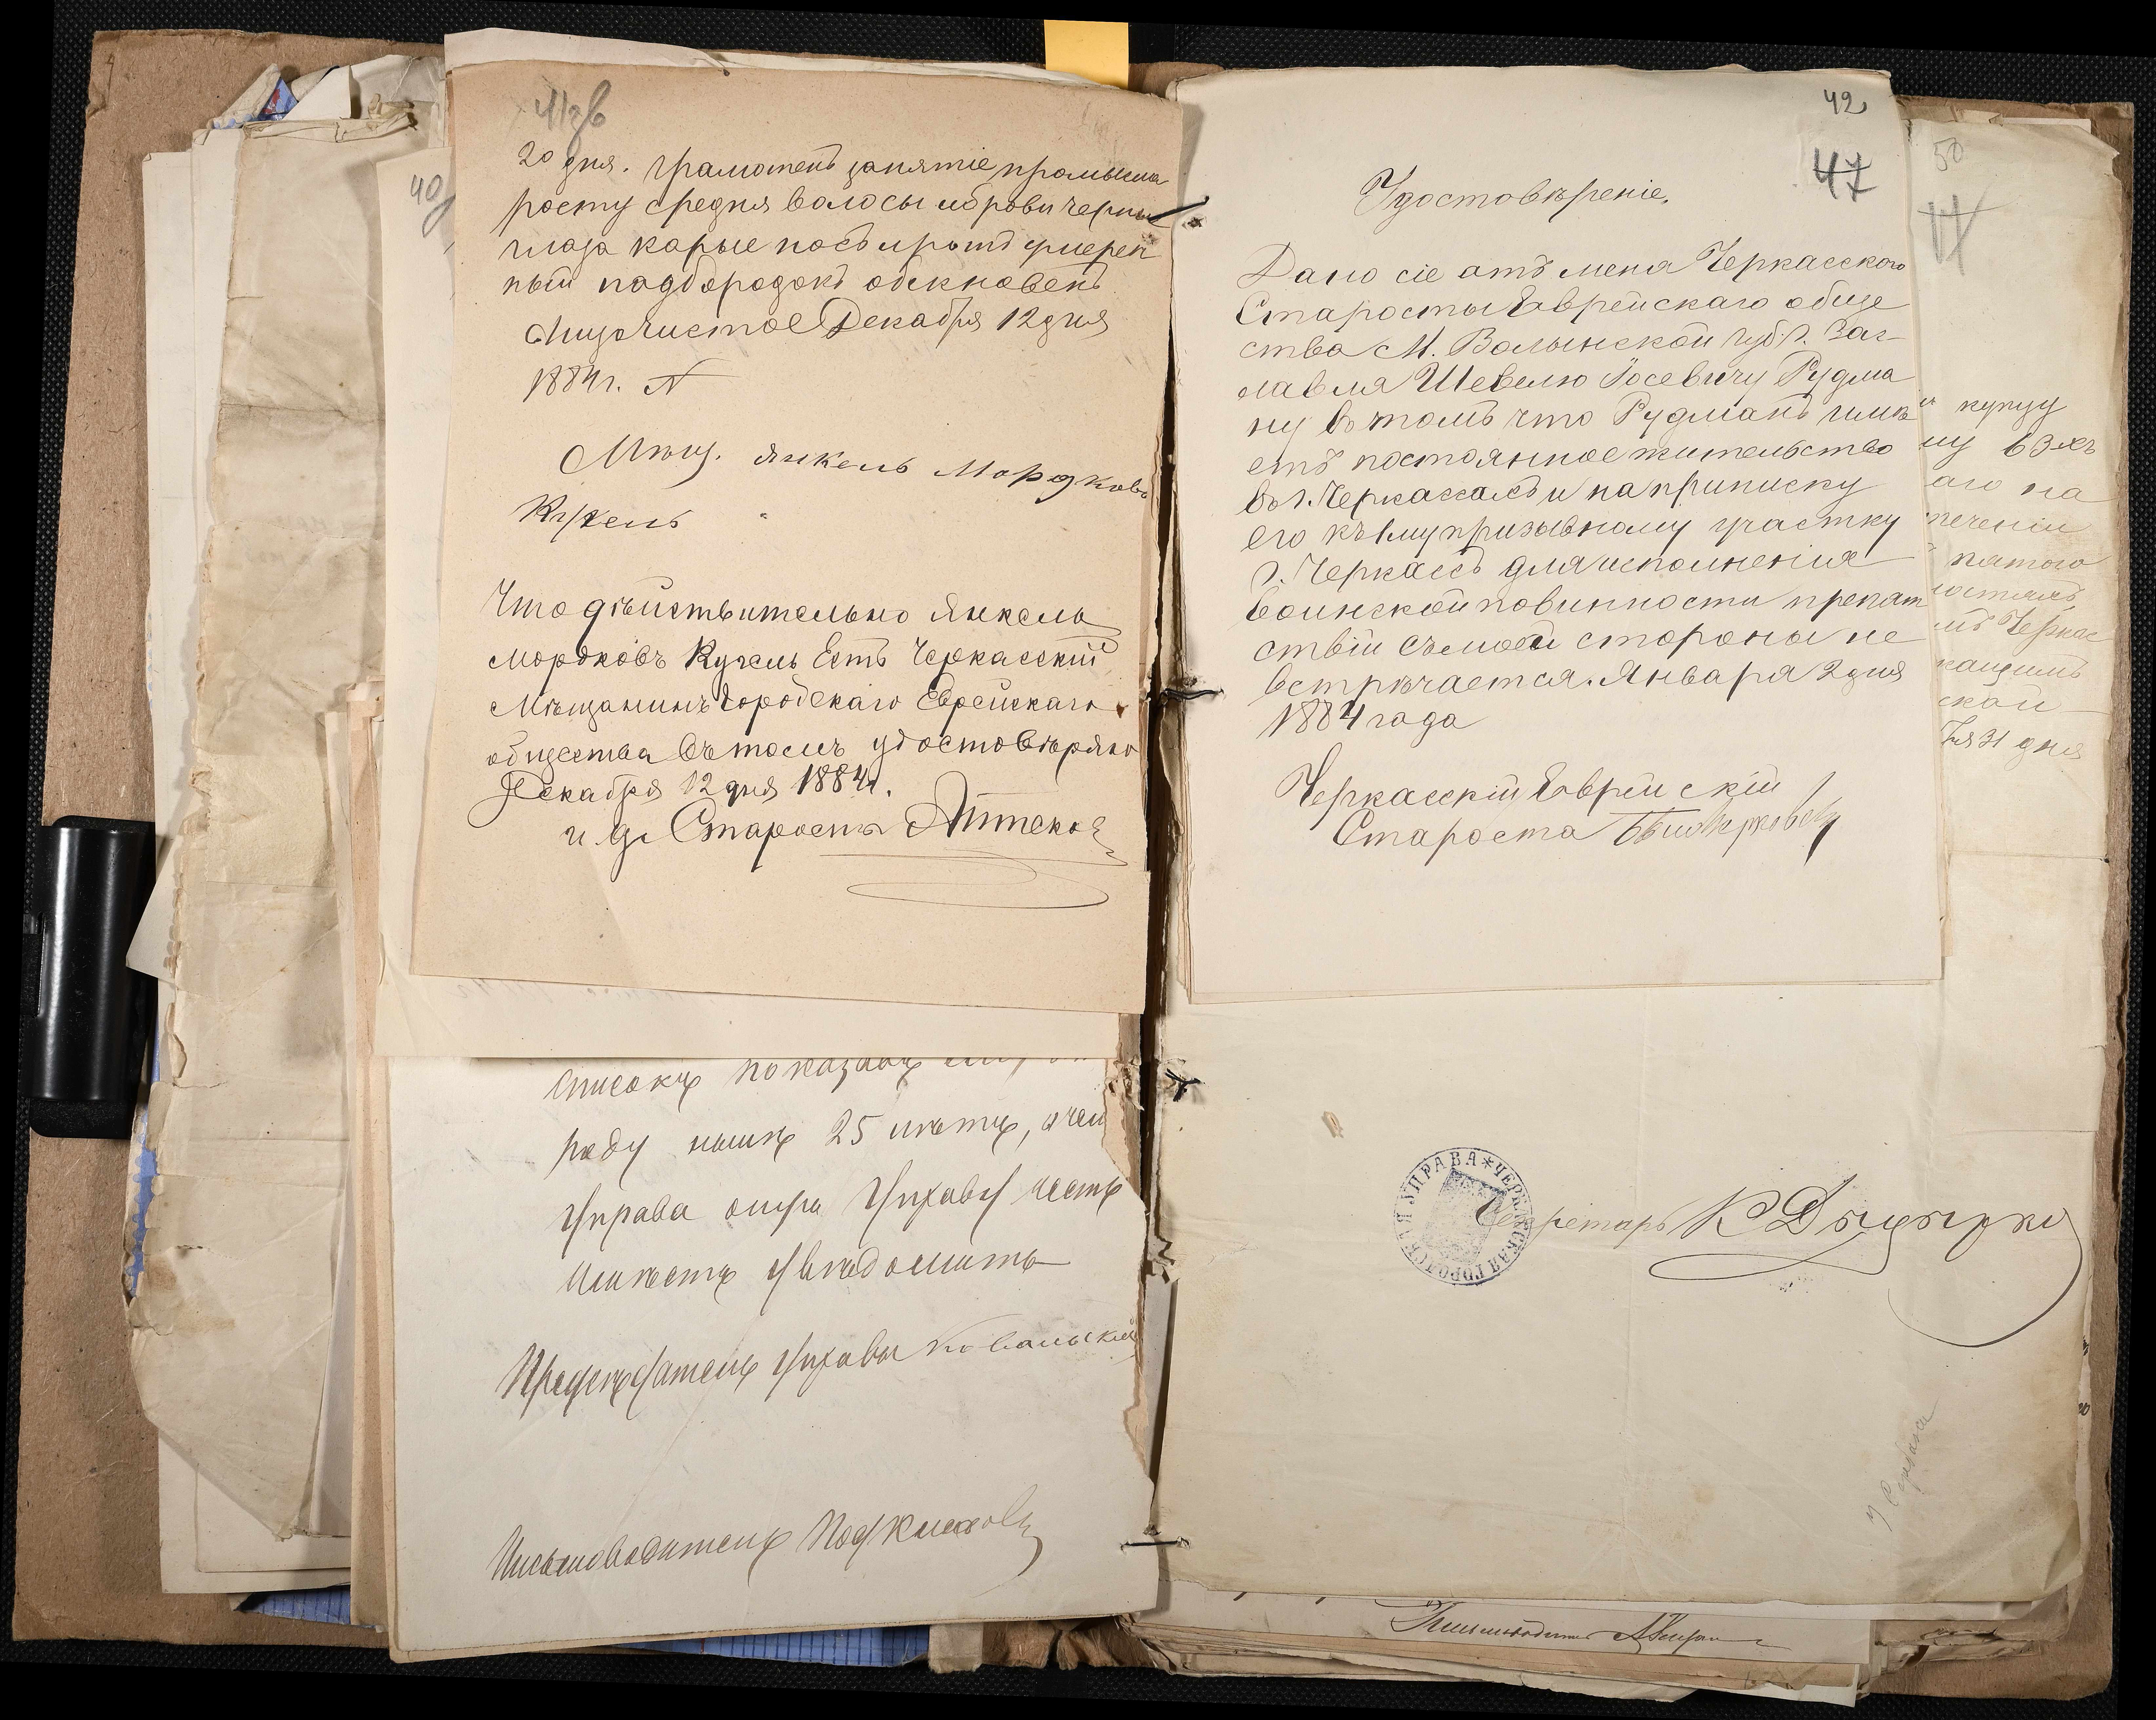 20 дня. грамотенъ занятіе промышл
росту средня волосы и брови черные
глаза карые носъ и ротъ умерен
ный подбородокъ обекновенъ
Лицо чистое Декабря 12 дня
1884 г.
Мѣщ. Янкель Мордковъ
Кужель
Что дѣйствительно Янкель
Мордковъ Кужель Есть Черкасскій
Мѣщанинъ Городскаго Еврейскаго
общества въ томъ удостовѣряю
Декабря 12 дня 1884 г.
и д. Староста
списокъ показанъ
роду нынѣ 25 лѣтъ, о чемъ
Управа оную Управу честь
имѣетъ увѣдомить
Предсѣдатель Управы Ковальскій
Письмоводитель
40
42
47
Удостовѣреніе.
Дано сіе отъ мена Черкасского
Старосты Еврейскаго обще
ства М. Волынской губ. г. Зас
лавля Шевелю Іосевичу Рудма
ну въ томъ что Рудманъ имѣ
етъ постоянное жительство
въ г. Черкасахъ и на приписку
его къ 1му призывному участку
г. Черкассъ для исполненія
воинской повинности препят
ствій съ моей стороны не
встрѣчается. Января 2 дня
1884 года
Черкасскій Еврейскій
Староста
50
купцу
ну въ 3-хъ
аго на
теченіи
пятого
Черкас
ской
31 дня
ЧЕРКАССКАЯ ГОРОДСКАЯ УПРАВА
Секретарь
Письмоводитель